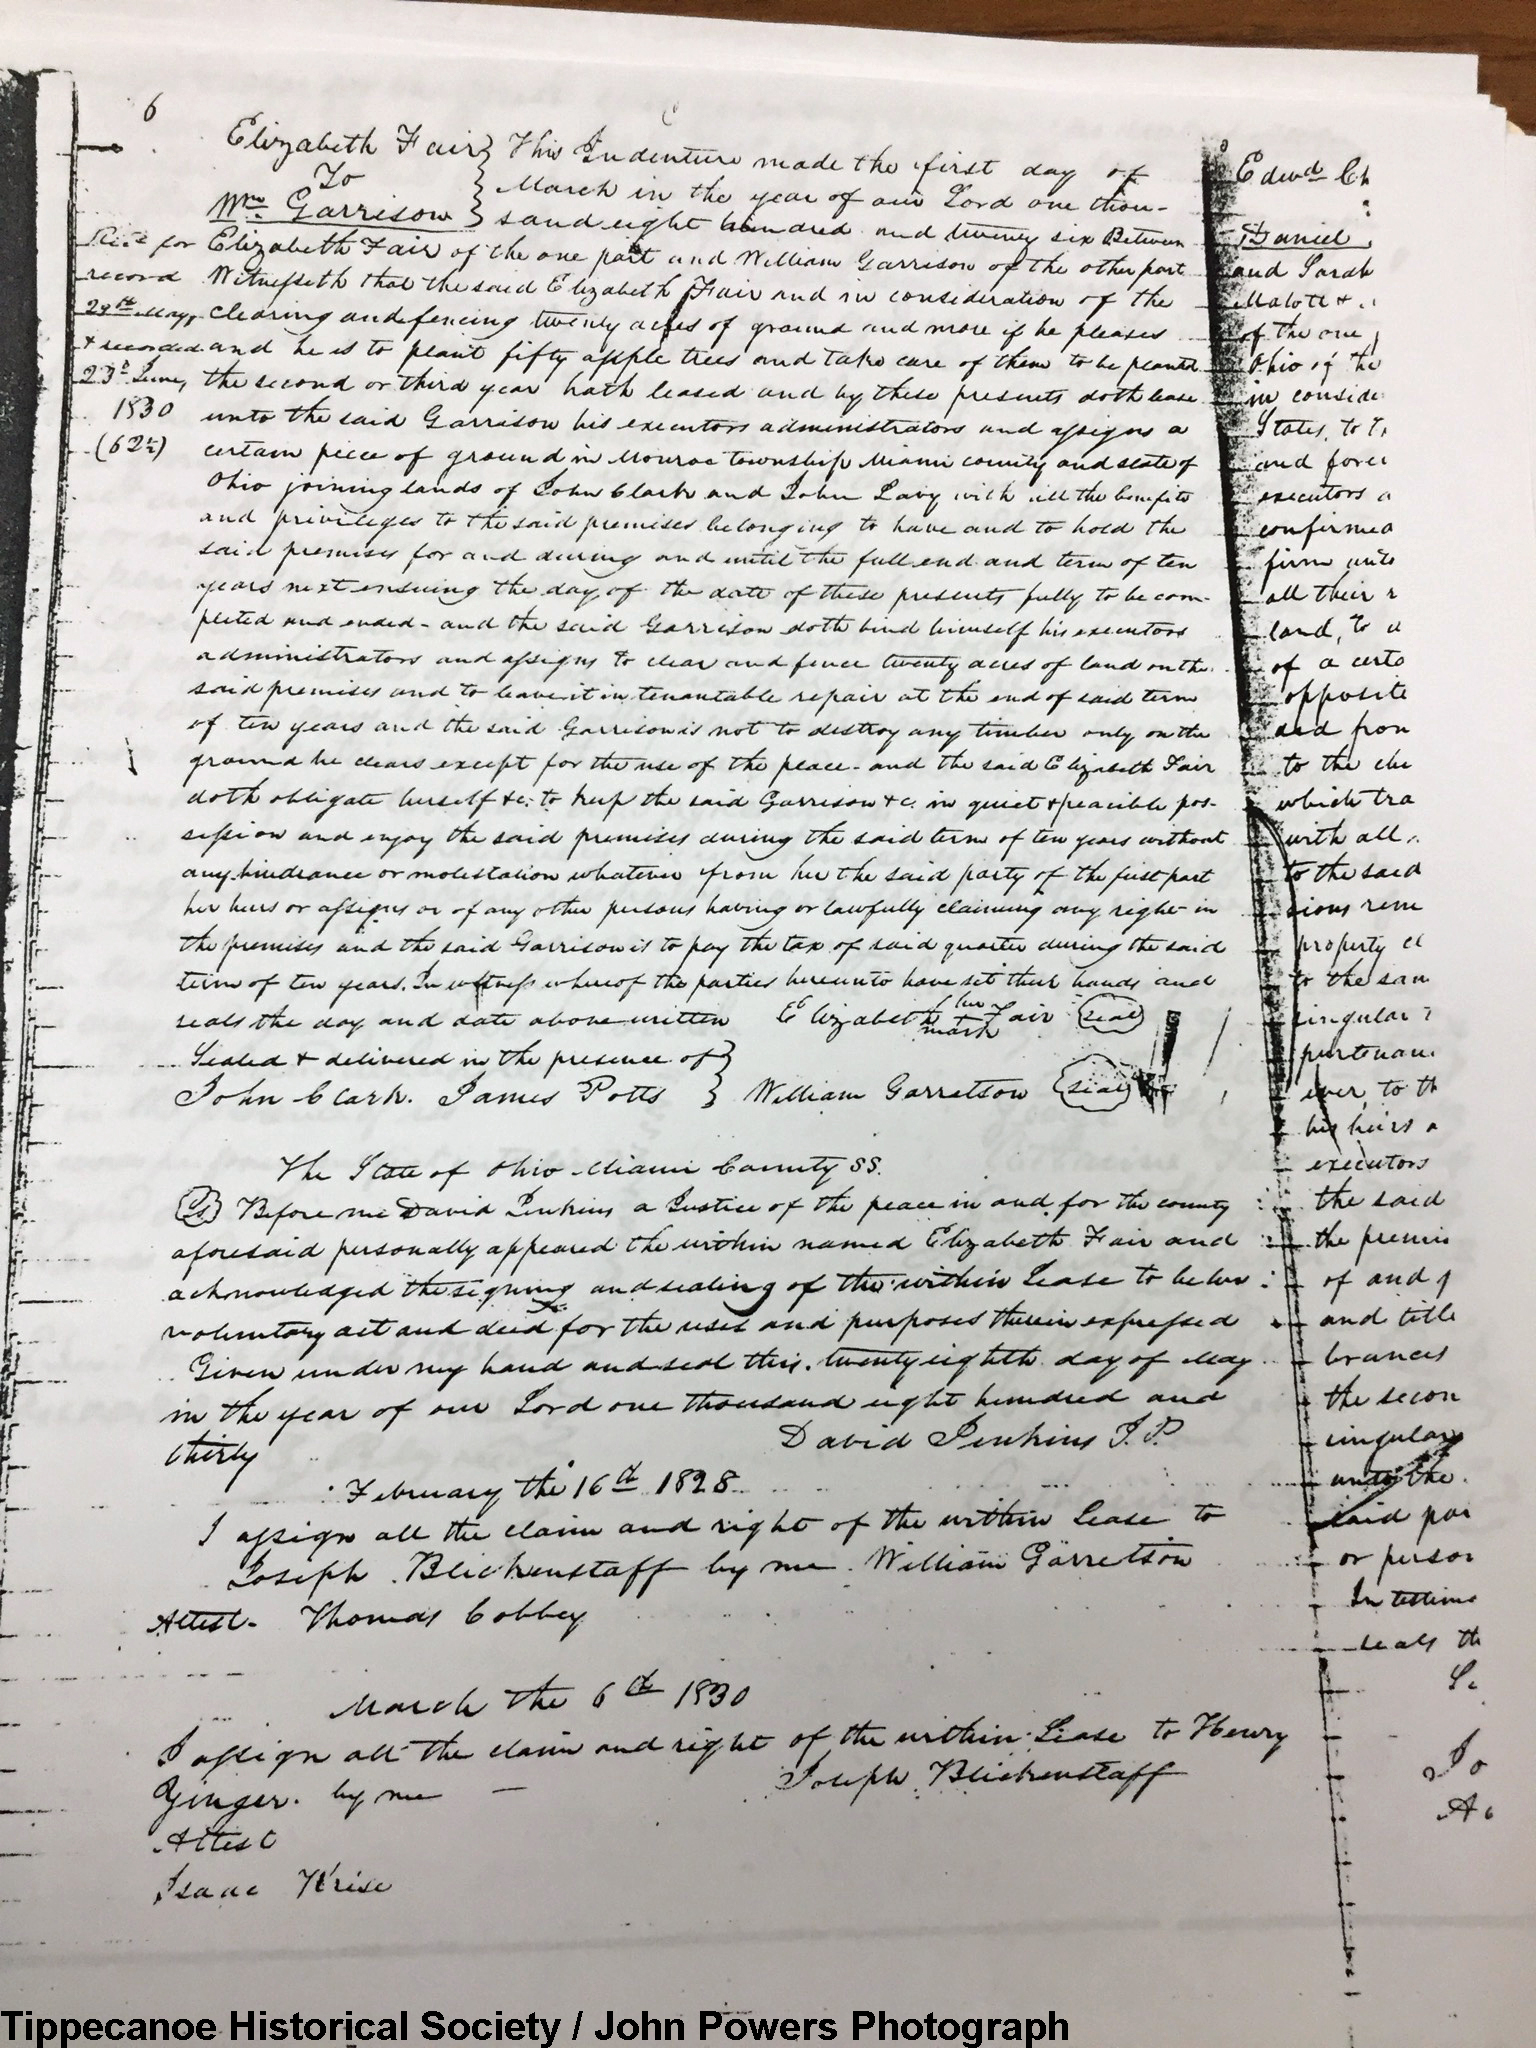 6
Elizabeth Fair } This Indenture made the first day of
To } March in the year of our Lord one thou-
Wm. Garrison } sand eight hundred and twenty six Between
Rec'd for
record
29th May,
& recorded
23d June,
1830
(62½)
Elizabeth Fair of the one part and William Garrison of the other part
Witnesseth that the said Elizabeth Fair and in consideration of the
clearing and fencing twenty acres of ground and more if he pleases
and he is to plant fifty apple trees and take care of them to be planted
the second or third year hath leased and by these presents doth lease
unto the said Garrison his executors administrators and assigns a
certain piece of ground in Monroe township Miami county and state of
Ohio joining lands of John Clark and John Lavy with all the benefits
and privileges to the said premises belonging to have and to hold the
said premises for and during and until the full end and term of ten
years next ensuing the day of the date of these presents fully to be com-
pleted and ended - and the said Garrison doth bind himself his executors
administrators and assigns to clear and fence twenty acres of land on the
said premises and to leave it in tenantable repair at the end of said term
of ten years and the said Garrison is not to destroy any timber only on the
ground he clears except for the use of the place - and the said Elizabeth Fair
doth obligate herself &c. to keep the said Garrison &c. in quiet & peacible pos-
session and enjoy the said premises during the said term of ten years without
any hindrance or molestation whatever from her the said party of the first part
her heirs or assigns or of any other persons having or lawfully claiming any right in
the premises and the said Garrison is to pay the tax of said quarter during the said
term of ten years. In witness whereof the parties hereunto have set their hands and
seals the day and date above written Elizabeth her mark Fair seal
Sealed & delivered in the presence of }
John Clark. James Potts } William Garretson seal
The State of Ohio Miami County SS.
LS Before me David Jenkins a Justice of the peace in and for the county
aforesaid personally appeared the within named Elizabeth Fair and
acknowledged the signing and sealing of the within Lease to be her
voluntary act and deed for the uses and purposes therein expressed
Given under my hand and seal this twenty eighth day of May
in the year of our Lord one thousand eight hundred and
thirty David Jenkins J.P.
February the 16th 1828
I assign all the claim and right of the within Lease to
Joseph Blickenstaff by me William Garretson
Attest - Thomas Cobbey
March the 6th 1830
I assign all the claim and right of the within Lease to Henry
Yinger. by me — Joseph Blickenstaff
Attest
Isaac Krise
Edwd Ch
Daniel
and Sarah
Malott &
of the one
Ohio of the
in conside
States, to
and forev
executors a
confirmed
firm unto
all their
land, to
of a certa
opposite
and from
to the
which tra
with all
to the said
sions rem
property
to the sam
singular
purtenan
ever, to th
his heirs a
executors
the said
the premis
of and
and title
brances
the secon
singular
unto the
said par
or person
In testimo
seals th
Jo
Tippecanoe Historical Society / John Powers Photograph